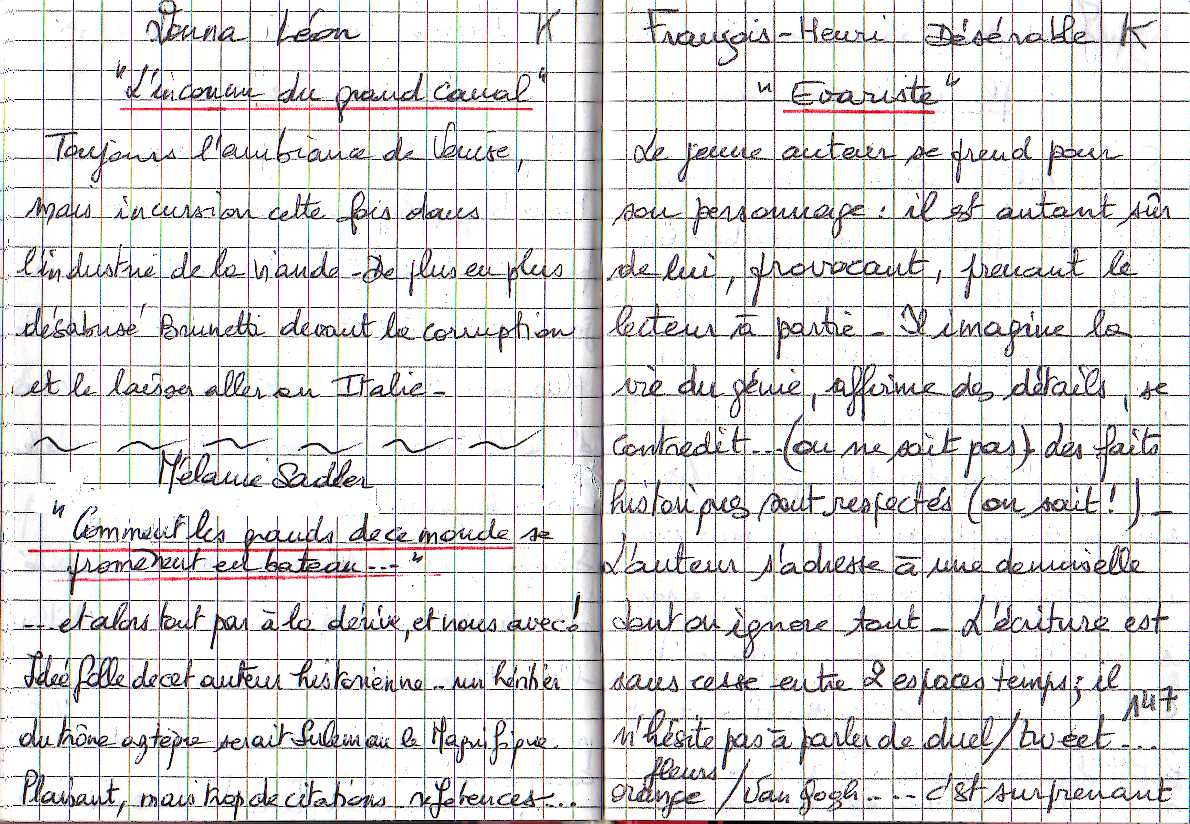 Donna Léon K
"L'inconnu du grand canal"
Toujours l'ambiance de Venise,
mais incursion cette fois dans
l'industrie de la viande - De plus en plus
désabusé Brunetti devant la corruption
et le laisser aller en Italie -
Mélanie Sadler
"Comment les grands de ce monde se
promènent en bateau ---"
--- et alors tout par à la dérive, et nous avec!
Idée folle de cet auteur historienne - un héritier
du trône aztèque serait Suleman le Magnifique.
Plaisant, mais trop de citations références ---
François-Henri Désérable K
"Evariste"
Le jeune auteur se prend pour
son personnage : il est autant sûr
de lui, provocant, prenant le
lecteur à partie - Il imagine la
vie du génie, affirme des détails, se
contredit --- (on ne sait pas) - des faits
historiques sont respectés (on sait!) -
L'auteur s'adresse à une demoiselle
dont on ignore tout - L'écriture est
sans cesse entre 2 espaces temps ; il
147
n'hésite pas à parler de duel / tweet ---
fleurs
orange / Van Gogh ---- c'est surprenant